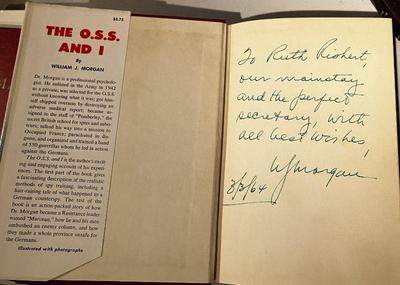 $3.75
THE O.S.S.
AND I
By
WILLIAM J. MORGAN
Dr. Morgan is a professional psycholo-
gist. He enlisted in the Army in 1942
as a private; was selected for the O.S.S.
without knowing what it was; got him-
self shipped overseas by destroying an
adverse medical report; became as-
signed to the staff of "Pemberley," the
secret British school for spies and sabo-
teurs; talked his way into a mission to
Occupied France; parachuted in dis-
guise, and organized and trained a band
of 550 guerrillas whom he led in action
against the Germans.
The O.S.S. and I is the author's excit-
ing and engaging account of his experi-
ences. The first part of the book gives
a fascinating description of the realistic
methods of spy training, including a
hair-raising tale of what happened to a
German counterspy. The rest of the
book is an action-packed story of how
Dr. Morgan became a Resistance leader
named "Marceau," how he and his men
ambushed an enemy column, and how
they made a whole province unsafe for
the Germans.
Illustrated with photographs
To Ruth Rishert,
our mainstay
and the perfect
secretary, with
all best wishes,
WJMorgan
3/3/64